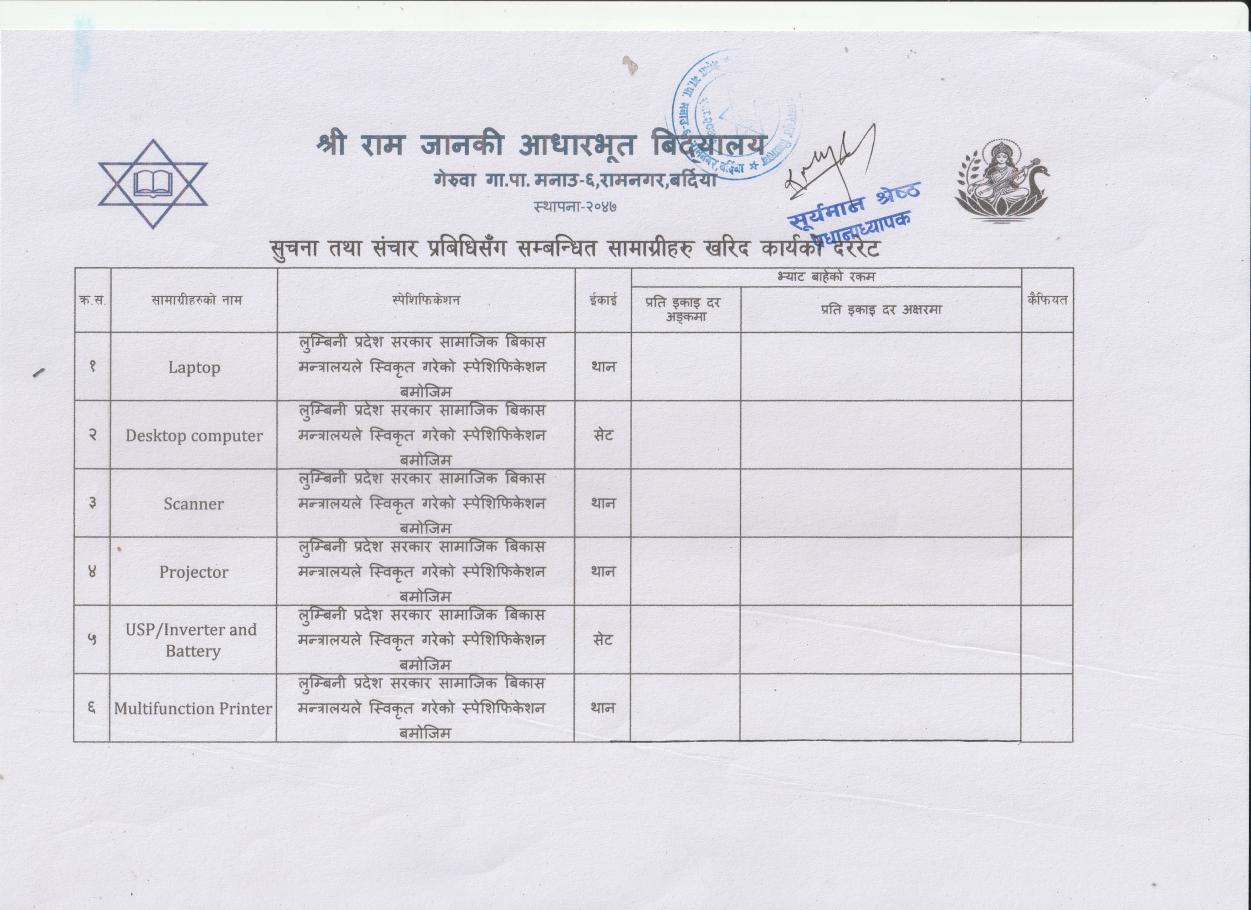 श्री राम जानकी आधारभूत बिद्यालय
गेरुवा गा.पा. मनाउ-६,रामनगर,बर्दिया
स्थापना-२०४७
सूर्यमान श्रेष्ठ
प्रधानाध्यापक
सुचना तथा संचार प्रबिधिसँग सम्बन्धित सामाग्रीहरु खरिद कार्यको दररेट
क्र.स. सामाग्रीहरुको नाम स्पेशिफिकेशन ईकाई भ्याट बाहेको रकम कैफियत
प्रति इकाइ दर अङ्कमा प्रति इकाइ दर अक्षरमा
१ Laptop लुम्बिनी प्रदेश सरकार सामाजिक बिकास
मन्त्रालयले स्विकृत गरेको स्पेशिफिकेशन
बमोजिम थान
२ Desktop computer लुम्बिनी प्रदेश सरकार सामाजिक बिकास
मन्त्रालयले स्विकृत गरेको स्पेशिफिकेशन
बमोजिम सेट
३ Scanner लुम्बिनी प्रदेश सरकार सामाजिक बिकास
मन्त्रालयले स्विकृत गरेको स्पेशिफिकेशन
बमोजिम थान
४ Projector लुम्बिनी प्रदेश सरकार सामाजिक बिकास
मन्त्रालयले स्विकृत गरेको स्पेशिफिकेशन
बमोजिम थान
५ USP/Inverter and
Battery लुम्बिनी प्रदेश सरकार सामाजिक बिकास
मन्त्रालयले स्विकृत गरेको स्पेशिफिकेशन
बमोजिम सेट
६ Multifunction Printer लुम्बिनी प्रदेश सरकार सामाजिक बिकास
मन्त्रालयले स्विकृत गरेको स्पेशिफिकेशन
बमोजिम थान